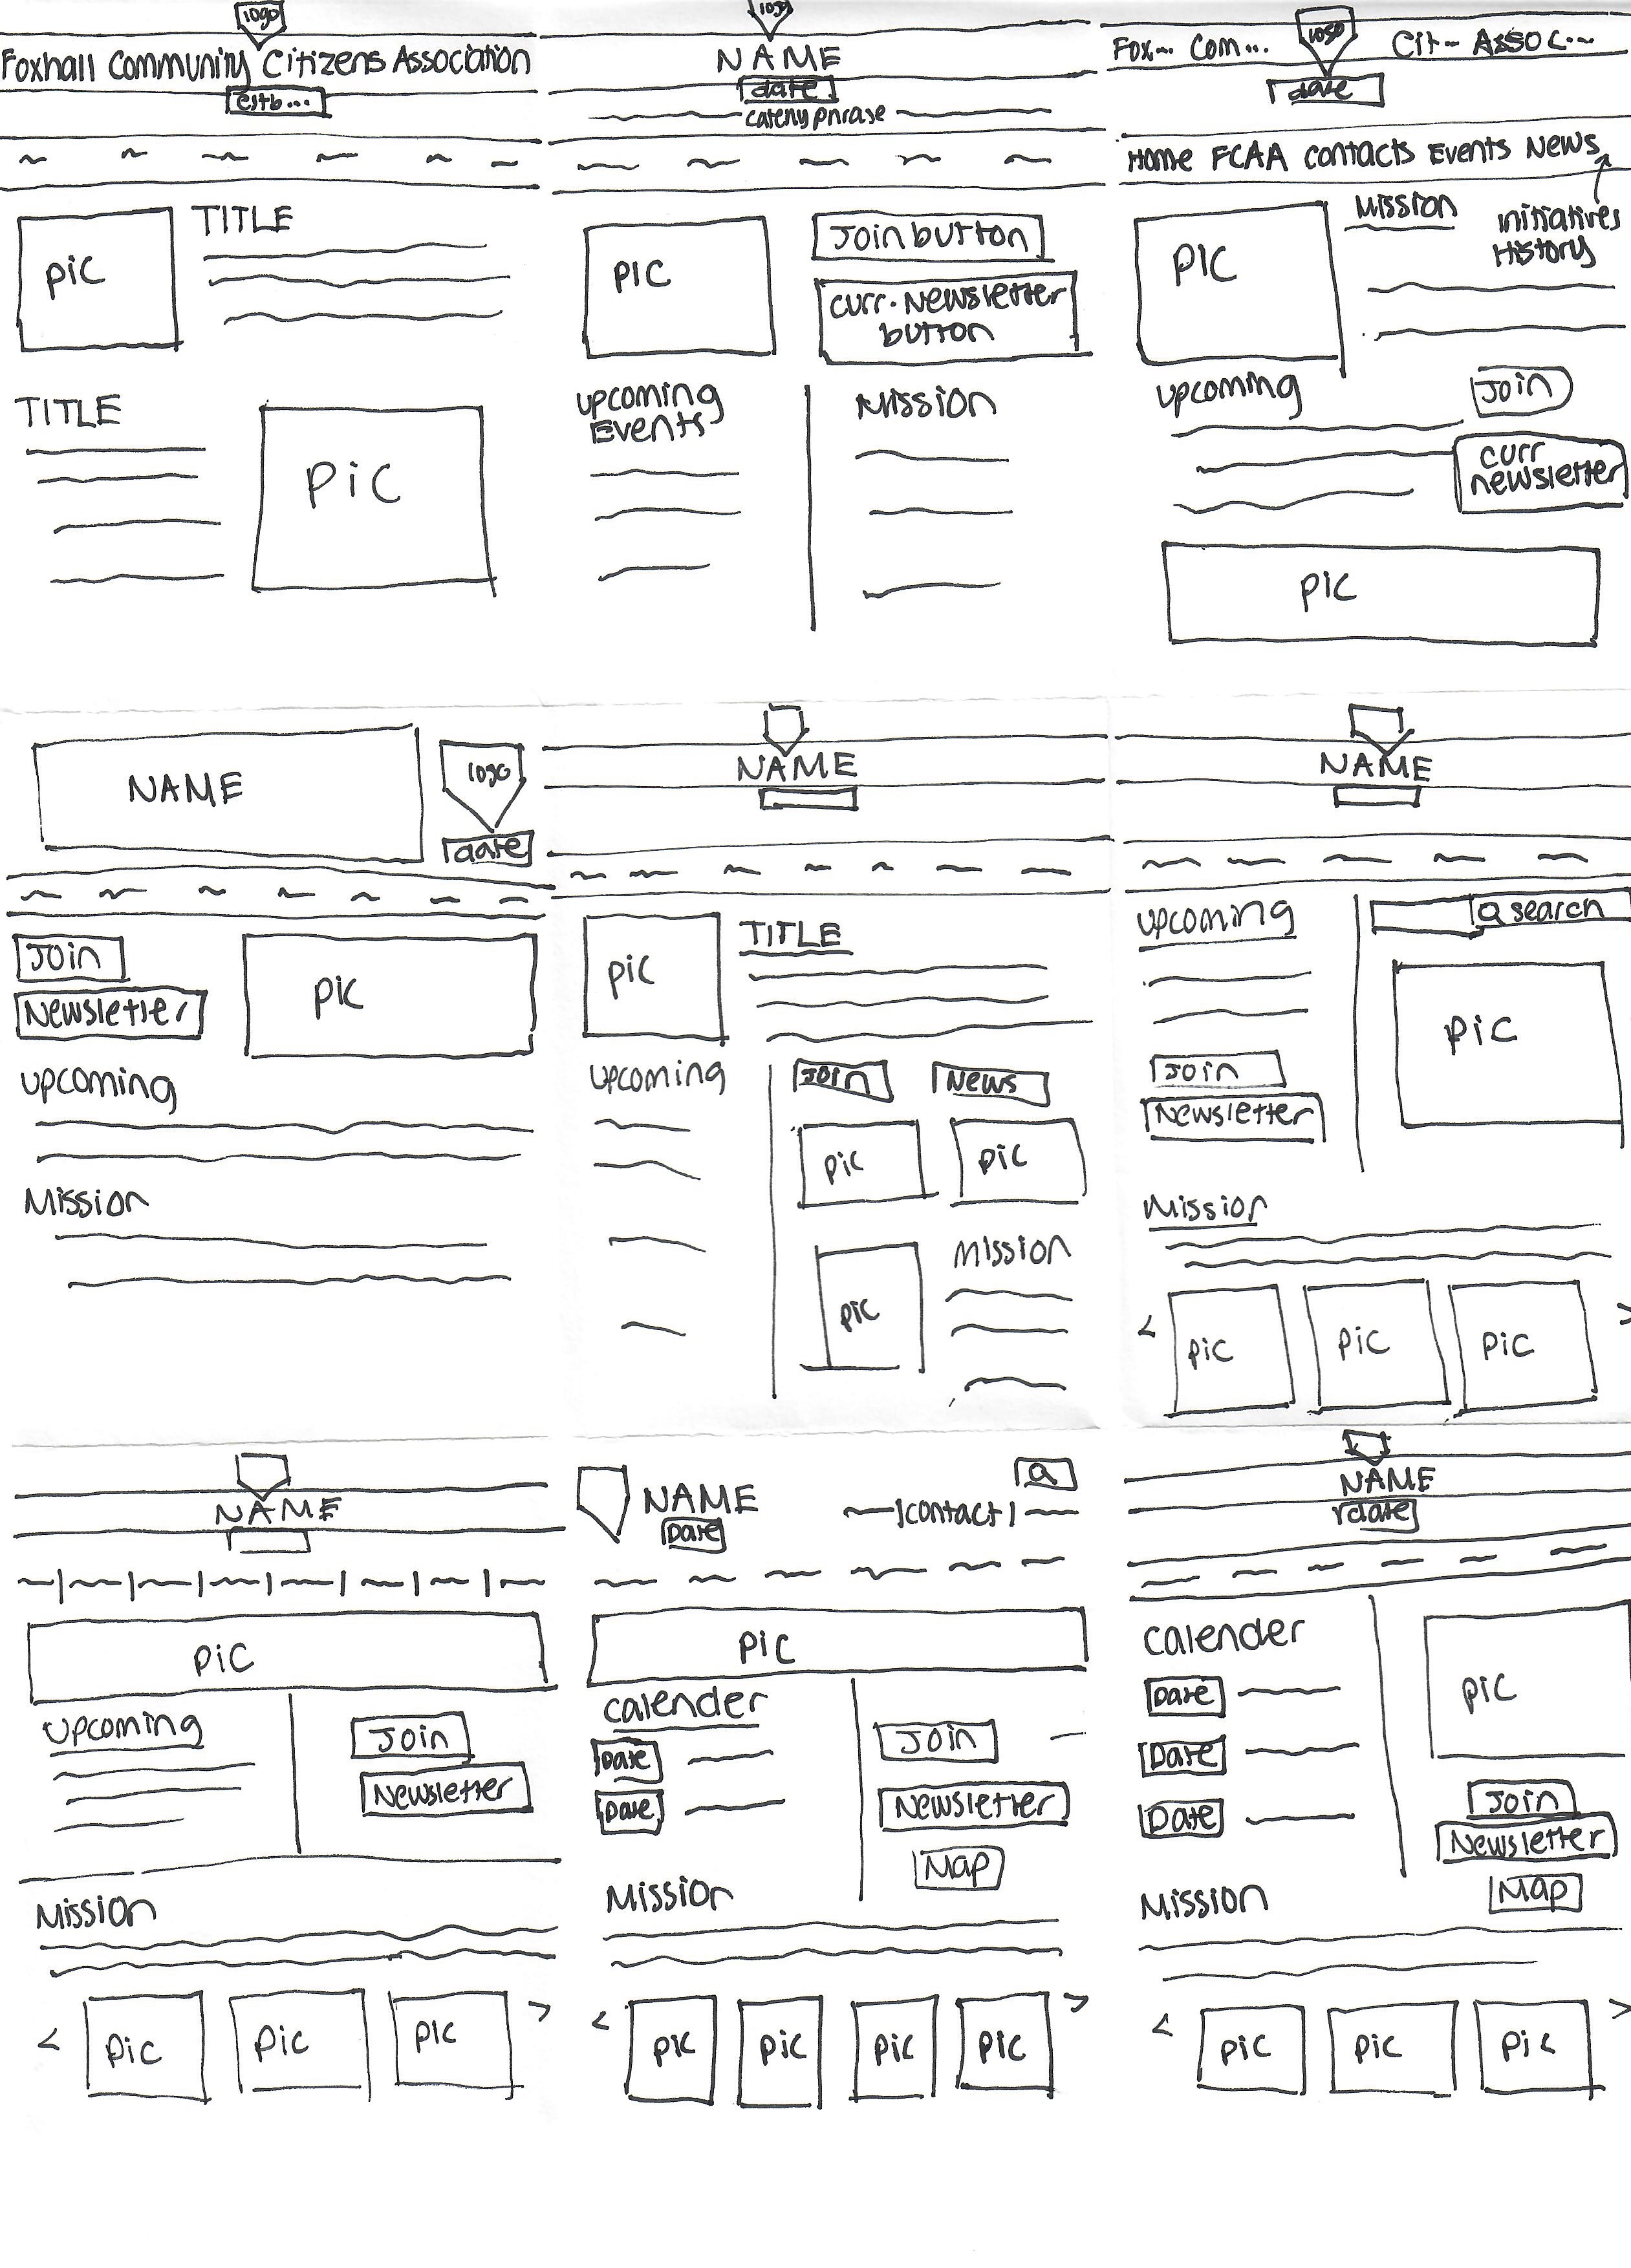 logo
Foxhall Community Citizens Association
estb...
PIC
TITLE
TITLE
PIC
logo
NAME
date
catchy phrase
PIC
Join button
curr. Newsletter
button
upcoming
Events
Mission
Fox... Com...
logo
Cit- Assoc...
date
Home FCAA contacts Events News
PIC
Mission
initiatives
History
upcoming
Join
curr
newsletter
PIC
NAME
logo
date
Join
Newsletter
PIC
upcoming
Mission
NAME
PIC
TITLE
upcoming
Join
News
PIC
PIC
PIC
Mission
NAME
upcoming
search
PIC
Join
Newsletter
Mission
< PIC PIC PIC >
NAME
PIC
upcoming
Join
Newsletter
Mission
< PIC PIC PIC >
NAME
Date
|contact|
PIC
calender
Date
Date
Join
Newsletter
Map
Mission
< PIC PIC PIC PIC >
NAME
date
calender
Date
Date
Date
PIC
Join
Newsletter
Map
Mission
< PIC PIC PIC >